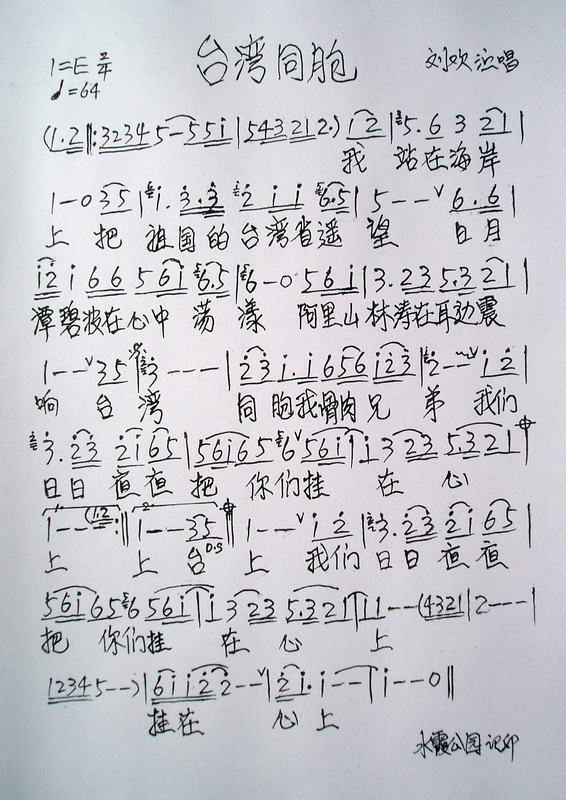 台湾同胞
1=E 2/4
♩=64
刘欢演唱
(1.2‖:3234 5-551|5432 12.) 12|5.6 3 21|
我 站在海岸
1-0 35|1.3.3 2 1 1 6.5|5--ᵛ6.6|
上 把 祖国的台湾省遥 望 日月
12 1 66 561 6.5|6-0 561|3.23 5.3 21|
潭碧波在心中 荡 漾 阿里山林涛在耳边震
1--ᵛ35|3---|23 1.1 656 123|2--ᵛ12|
响 台 湾 同胞我骨肉兄 弟 我们
3.23 2165|56165 6ᵛ561|1 3 23 5.321|
日日夜夜 把 你们挂 在 心
1--(1.2:‖1--35‖1--ᵛ12|3.23 21 65|
上 上 台 D.S 上 我们日日夜夜
561656 561|1 3 23 5.321|11--(4321|2---|
把 你们挂 在 心 上
12345--)|6112 2--ᵛ|21.1--|1--0‖
挂在 心上
水霞公园记印